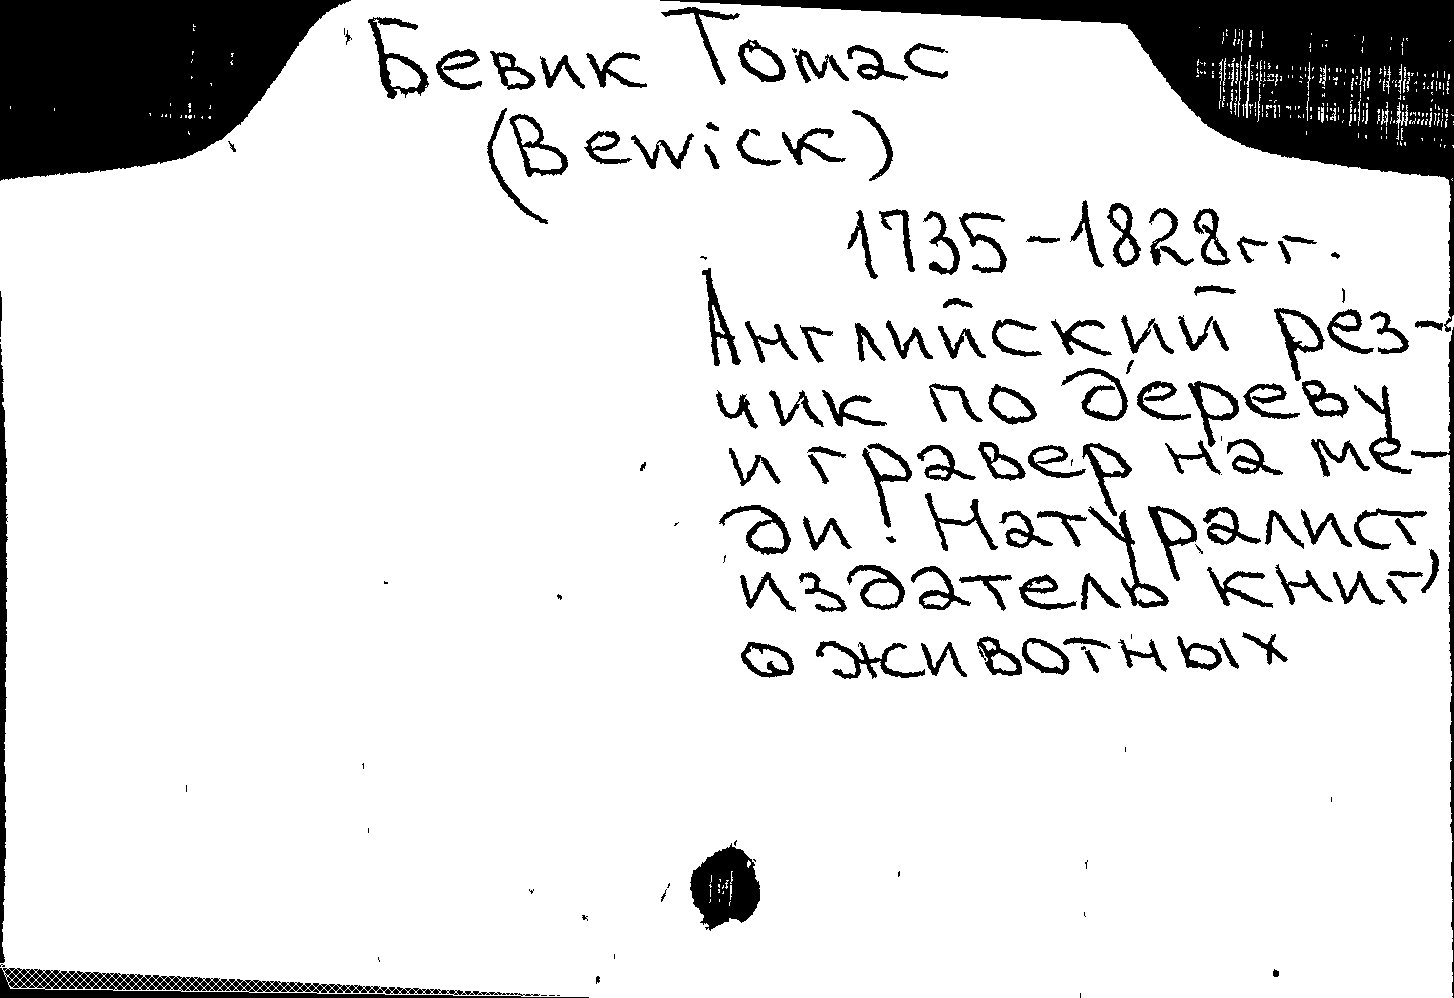 Бевик Томас
(Bewick)
1735-1828гг.
Английский рез-
чик по дереву
и гравер на ме-
ди! Натуралист,
издатель книг
о животных